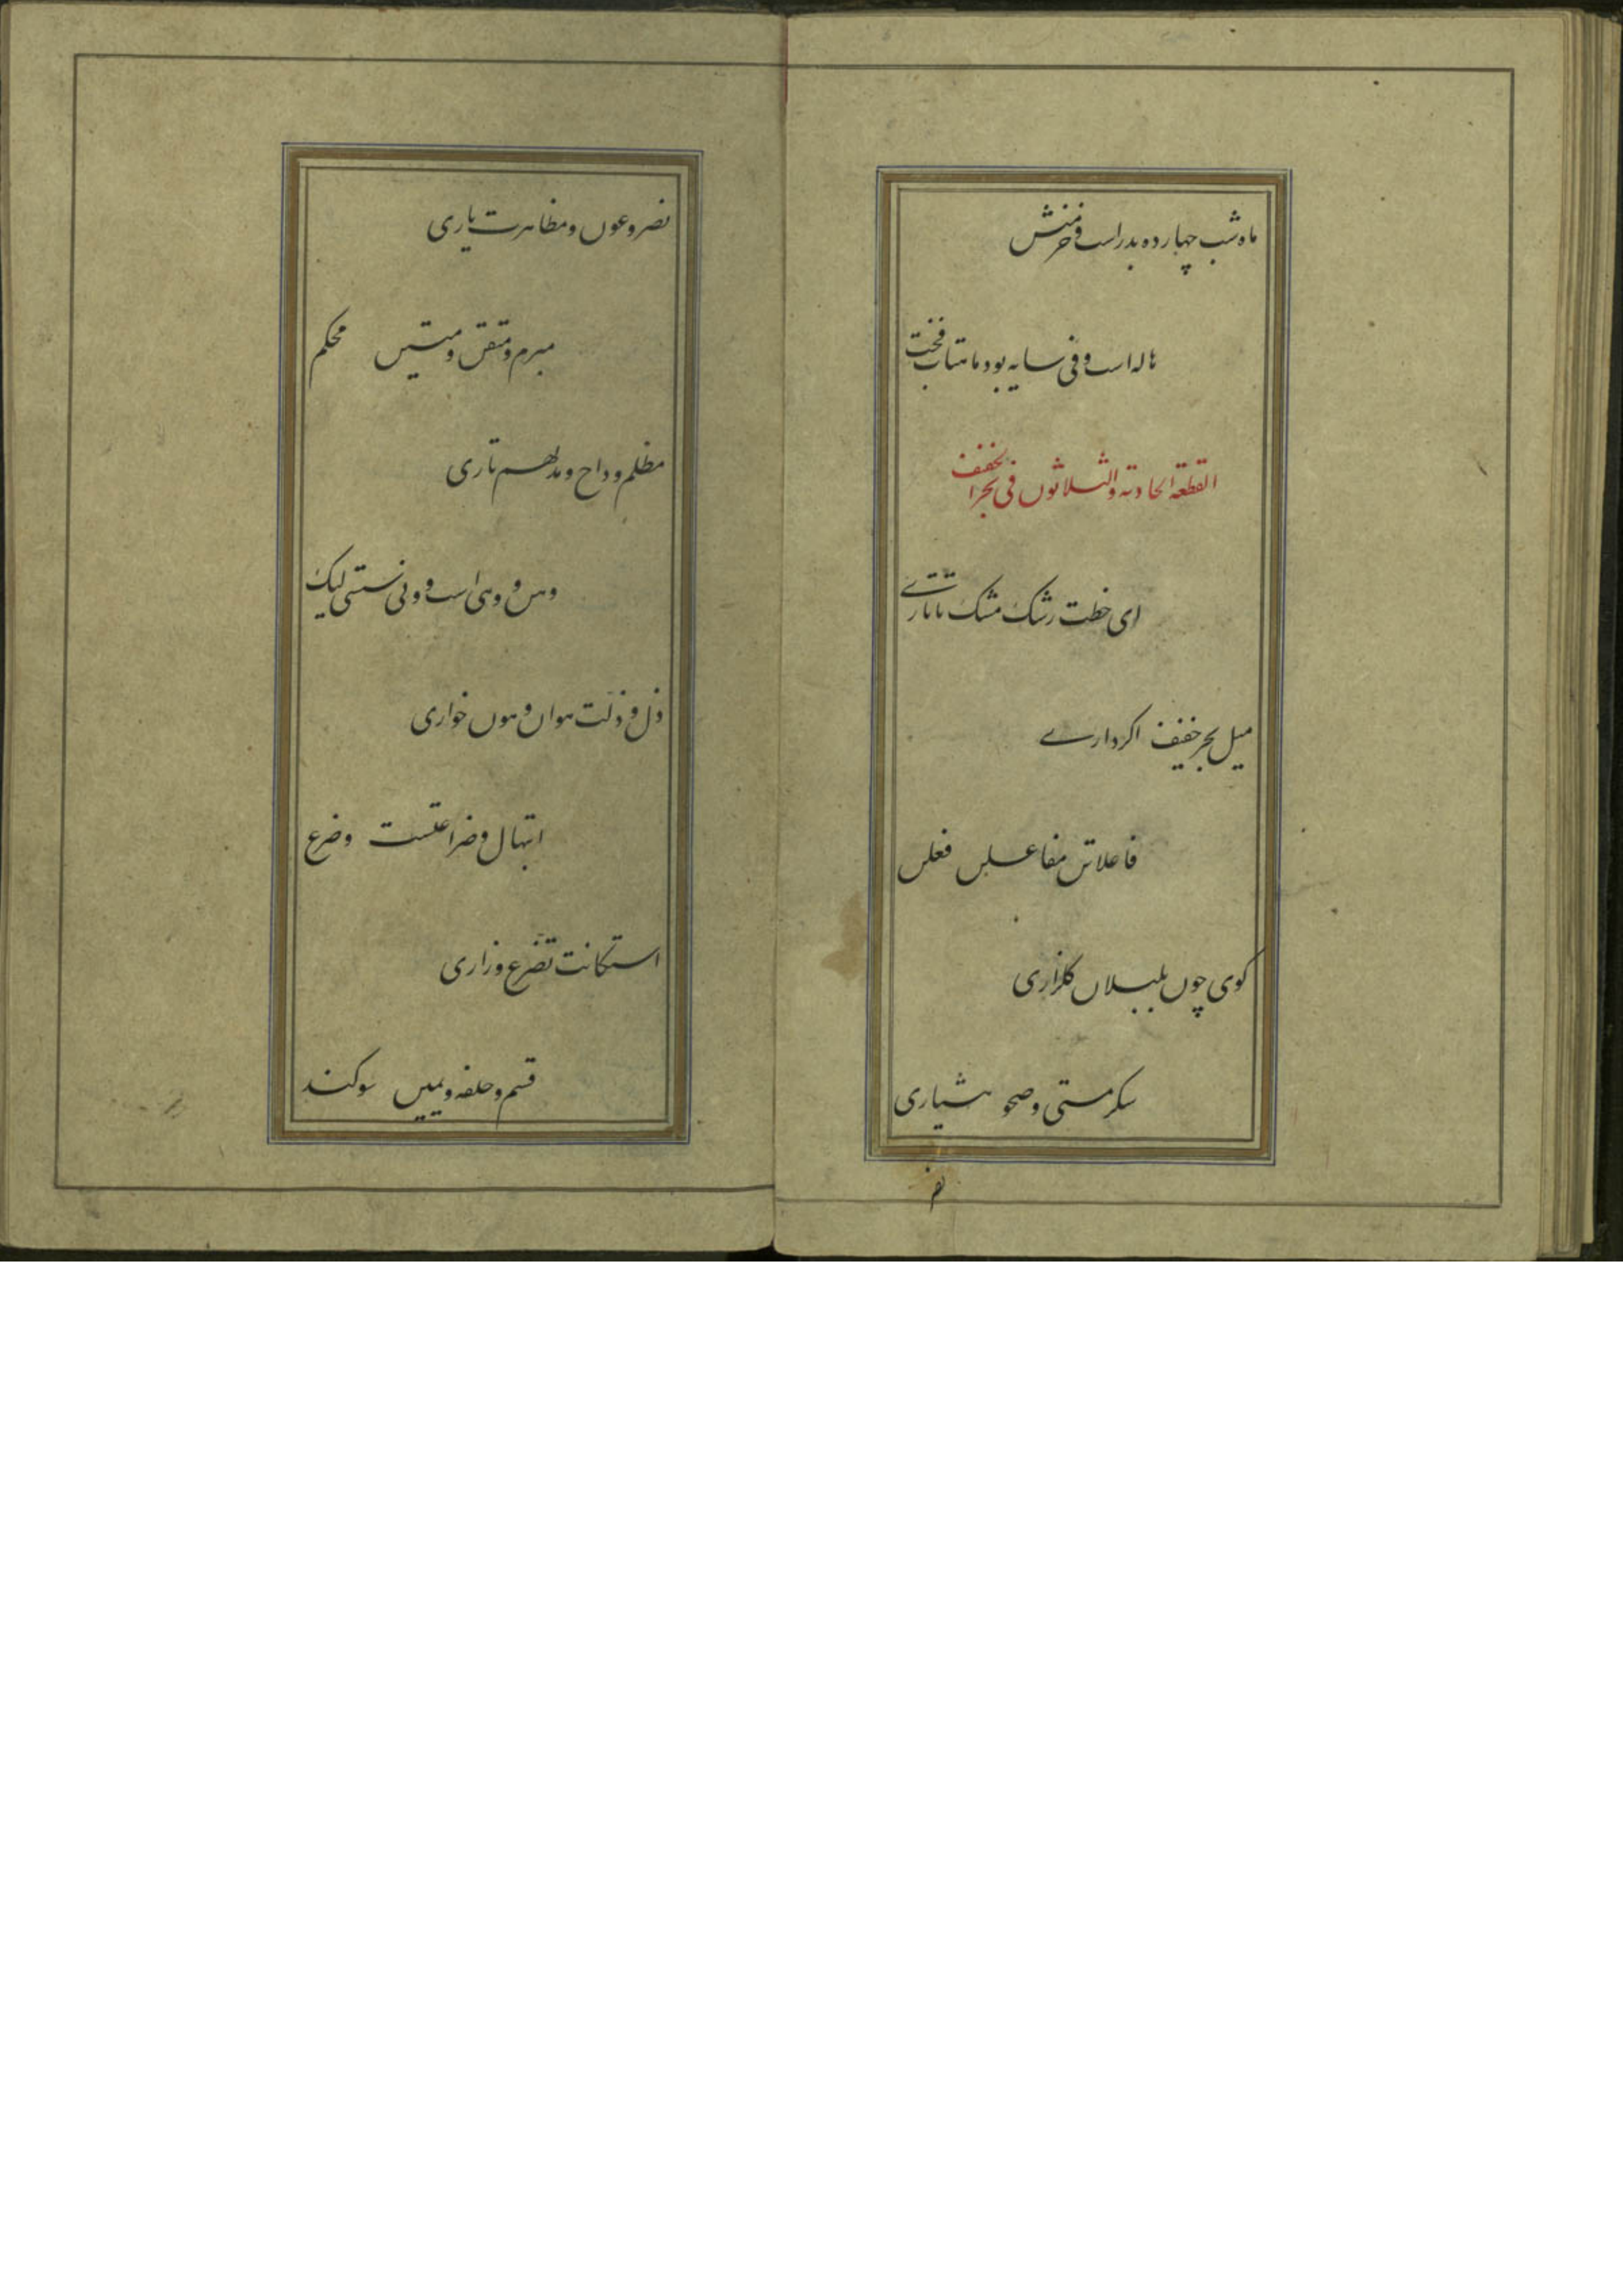 ماه شب چهارده بدر است و خرمنش
هاله است و فی سایه بود ماهتاب فخت
القطعة الحادیة والثلاثون فی بحر الخفیف
ای خطت رشک مشک تاتاری
میل بحر خفیف اکر داری
فاعلاتن مفاعلن فعلن
کوی چون بلبلان کلزاری
سکر مستی و صحو هشیاری
نصر
نصر و عون و مظاهرت یاری
مبرم و متقن و متین محکم
مظلم و داج و مدلهم تاری
وهن و وهی است و ونی سستی لیک
ذل و ذلت هوان و هون خواری
ابتهال و ضراعتست وضرع
استکانت تضرع و زاری
قسم و حلفه و یمین سوکند